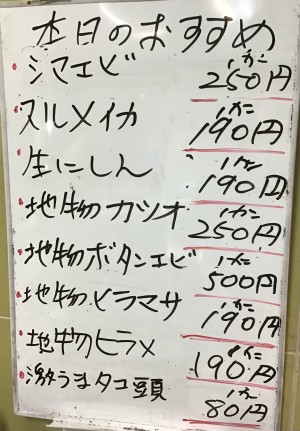 本日のおすすめ
シマエビ 1カン 250円
スルメイカ 1カン 190円
生にしん 1カン 190円
地物カツオ 1カン 250円
地物ボタンエビ 1カン 500円
地物ヒラマサ 1カン 190円
地物ヒラメ 1カン 190円
激うまタコ頭 1カン 80円